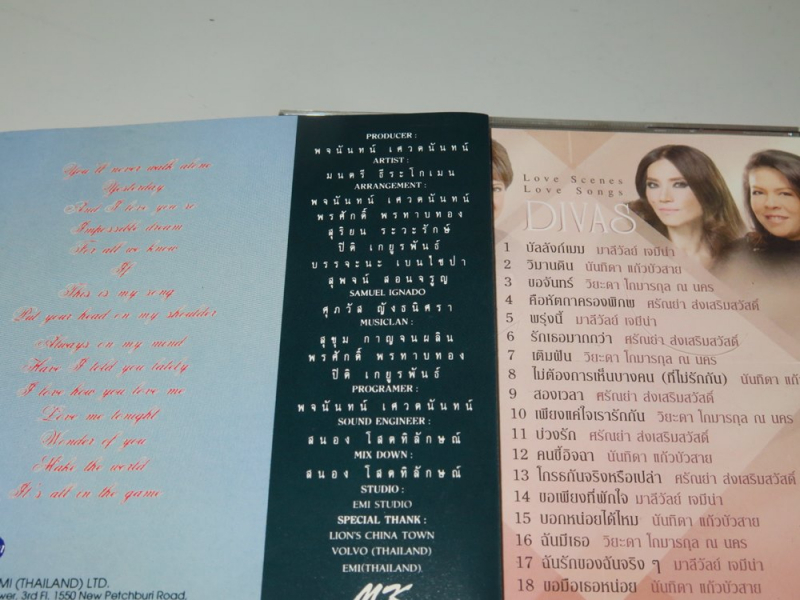 You'll never walk alone
Yesterday
And I love you so
Impossible dream
For all we know
If
This is my song
Put your head on my shoulder
Always on my mind
Have I told you lately
I love how you love me
Love me tonight
Wonder of you
Make the world
It's all in the game
EMI (THAILAND) LTD.
3rd Fl. 1550 New Petchburi Road,
PRODUCER :
พจนันทน์ เศวตนันทน์
ARTIST :
มนตรี ธีระโกเมน
ARRANGEMENT :
พจนันทน์ เศวตนันทน์
พรศักดิ์ พรหาบทอง
สุริยน ระวะรักษ์
ปิติ เกยูรพันธ์
บรรจะนะ เบนไชปา
สุพจน์ สอนจรูญ
SAMUEL IGNADO
ศุภวัส ญังธนิศรา
MUSICLAN :
สุขุม กาญจนผลิน
พรศักดิ์ พรหาบทอง
ปิติ เกยูรพันธ์
PROGRAMER :
พจนันทน์ เศวตนันทน์
SOUND ENGINEER :
สนอง โสตทิลักษณ์
MIX DOWN :
สนอง โสตทิลักษณ์
STUDIO :
EMI STUDIO
SPECIAL THANK :
LION'S CHINA TOWN
VOLVO (THAILAND)
EMI(THAILAND)
MK
Love Scenes
Love Songs
DIVAS
1 บัลลังก์เมฆ มาลีวัลย์ เจมีน่า
2 วิมานดิน นันทิดา แก้วบัวสาย
3 ขอจันทร์ วิยะดา โกมารกุล ณ นคร
4 คือหัตถาครองพิภพ ศรัณย่า ส่งเสริมสวัสดิ์
5 พรุ่งนี้ มาลีวัลย์ เจมีน่า
6 รักเธอมากกว่า ศรัณย่า ส่งเสริมสวัสดิ์
7 เติมฝัน วิยะดา โกมารกุล ณ นคร
8 ไม่ต้องการเห็นบางคน (ที่ไม่รักกัน) นันทิดา แก้
9 สองเวลา ศรัณย่า ส่งเสริมสวัสดิ์
10 เพียงแค่ใจเรารักกัน วิยะดา โกมารกุล ณ นคร
11 บ่วงรัก ศรัณย่า ส่งเสริมสวัสดิ์
12 คนขี้อิจฉา นันทิดา แก้วบัวสาย
13 โกรธกันจริงหรือเปล่า ศรัณย่า ส่งเสริมสวัสดิ์
14 ขอเพียงที่พักใจ มาลีวัลย์ เจมีน่า
15 บอกหน่อยได้ไหม นันทิดา แก้วบัวสาย
16 ฉันมีเธอ วิยะดา โกมารกุล ณ นคร
17 ฉันรักของฉันจริง ๆ มาลีวัลย์ เจมีน่า
18 ขอมือเธอหน่อย นันทิดา แก้วบัวสาย